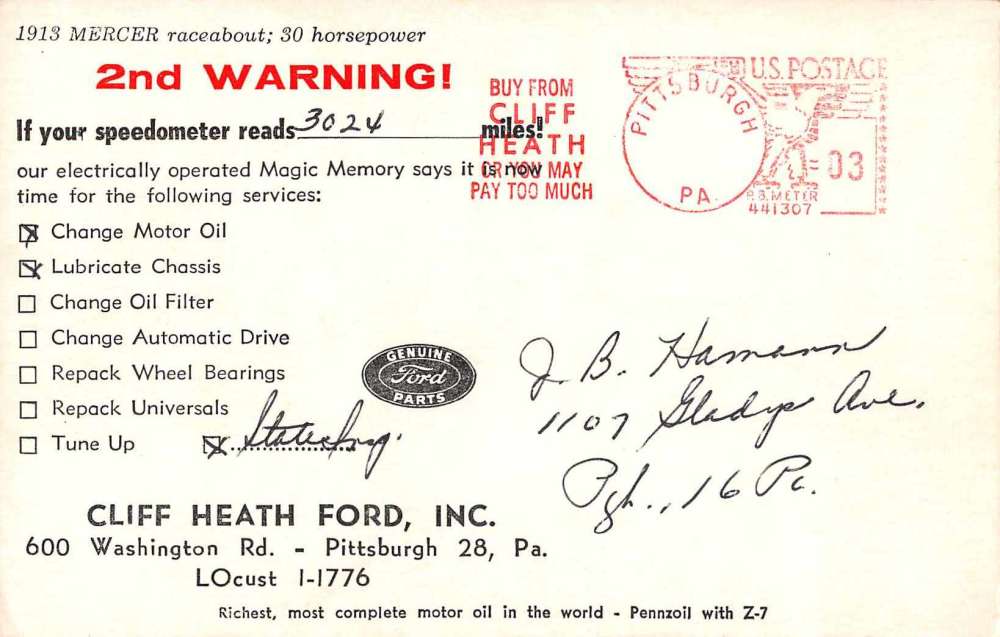 1913 MERCER raceabout; 30 horsepower
2nd WARNING!
If your speedometer reads 3024 miles!
our electrically operated Magic Memory says it is now
time for the following services:
Change Motor Oil
Lubricate Chassis
Change Oil Filter
Change Automatic Drive
Repack Wheel Bearings
Repack Universals
Tune Up State Insp.
BUY FROM
CLIFF
HEATH
OR YOU MAY
PAY TOO MUCH
PITTSBURGH
PA.
U.S. POSTAGE
03
P.B. METER
441307
GENUINE
Ford
PARTS
J. B. Hamann
1107 Gladys Ave.
Pgh., 16 Pa.
CLIFF HEATH FORD, INC.
600 Washington Rd. - Pittsburgh 28, Pa.
LOcust 1-1776
Richest, most complete motor oil in the world - Pennzoil with Z-7